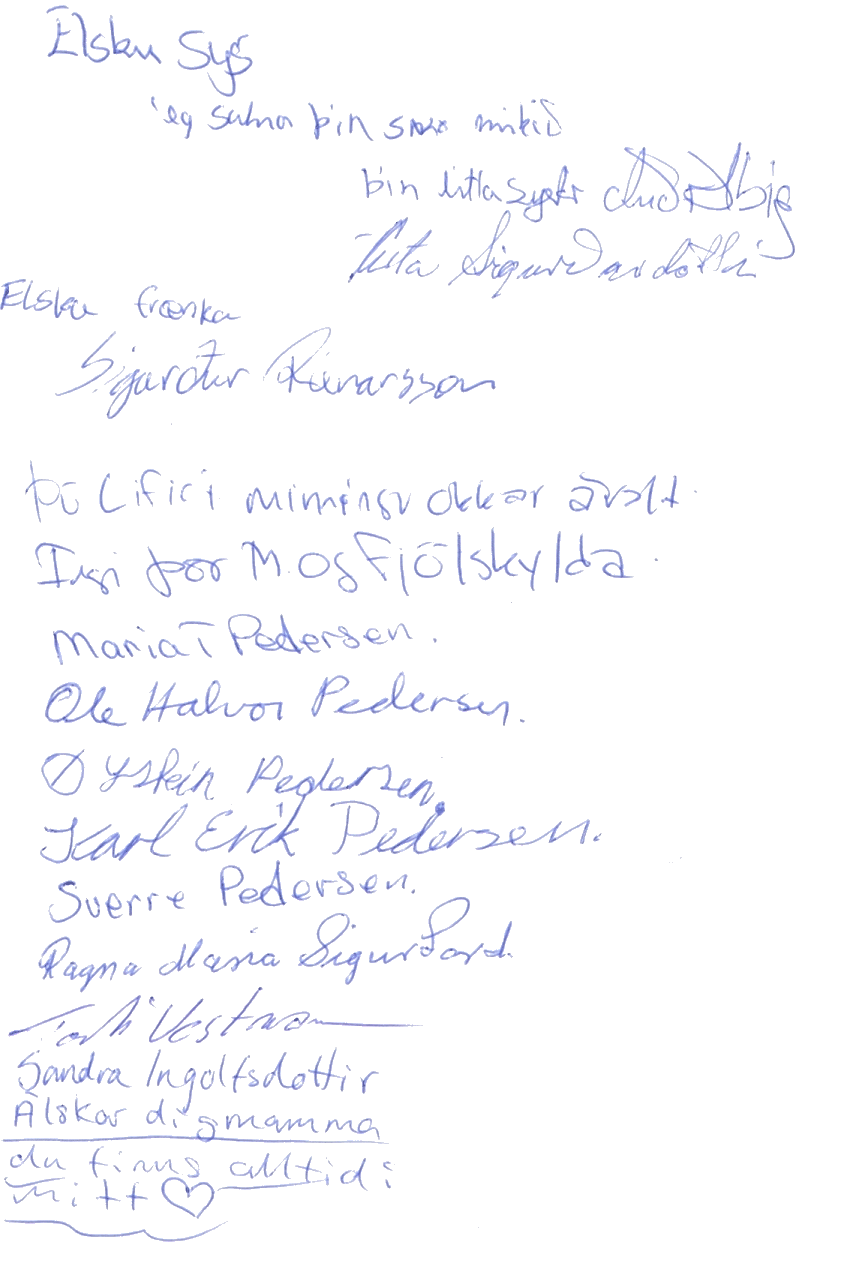 Elsku Sys
ég sakna þin svo mikið
þin litla systir
Sigurðardóttir
Elsku frænka
Sigurður Rúnarsson
þú Lifir í miningu okkar ávalt.
Ingi þor M og Fjölskylda.
Maria T Pedersen.
Ole Halvor Pedersen.
Øystein Pedersen.
Karl Erik Pedersen.
Sverre Pedersen.
Ragna María Sigurðard.
Sandra Ingolfsdottir
Älskar dig mamma
du finns alltid i
mitt ♡